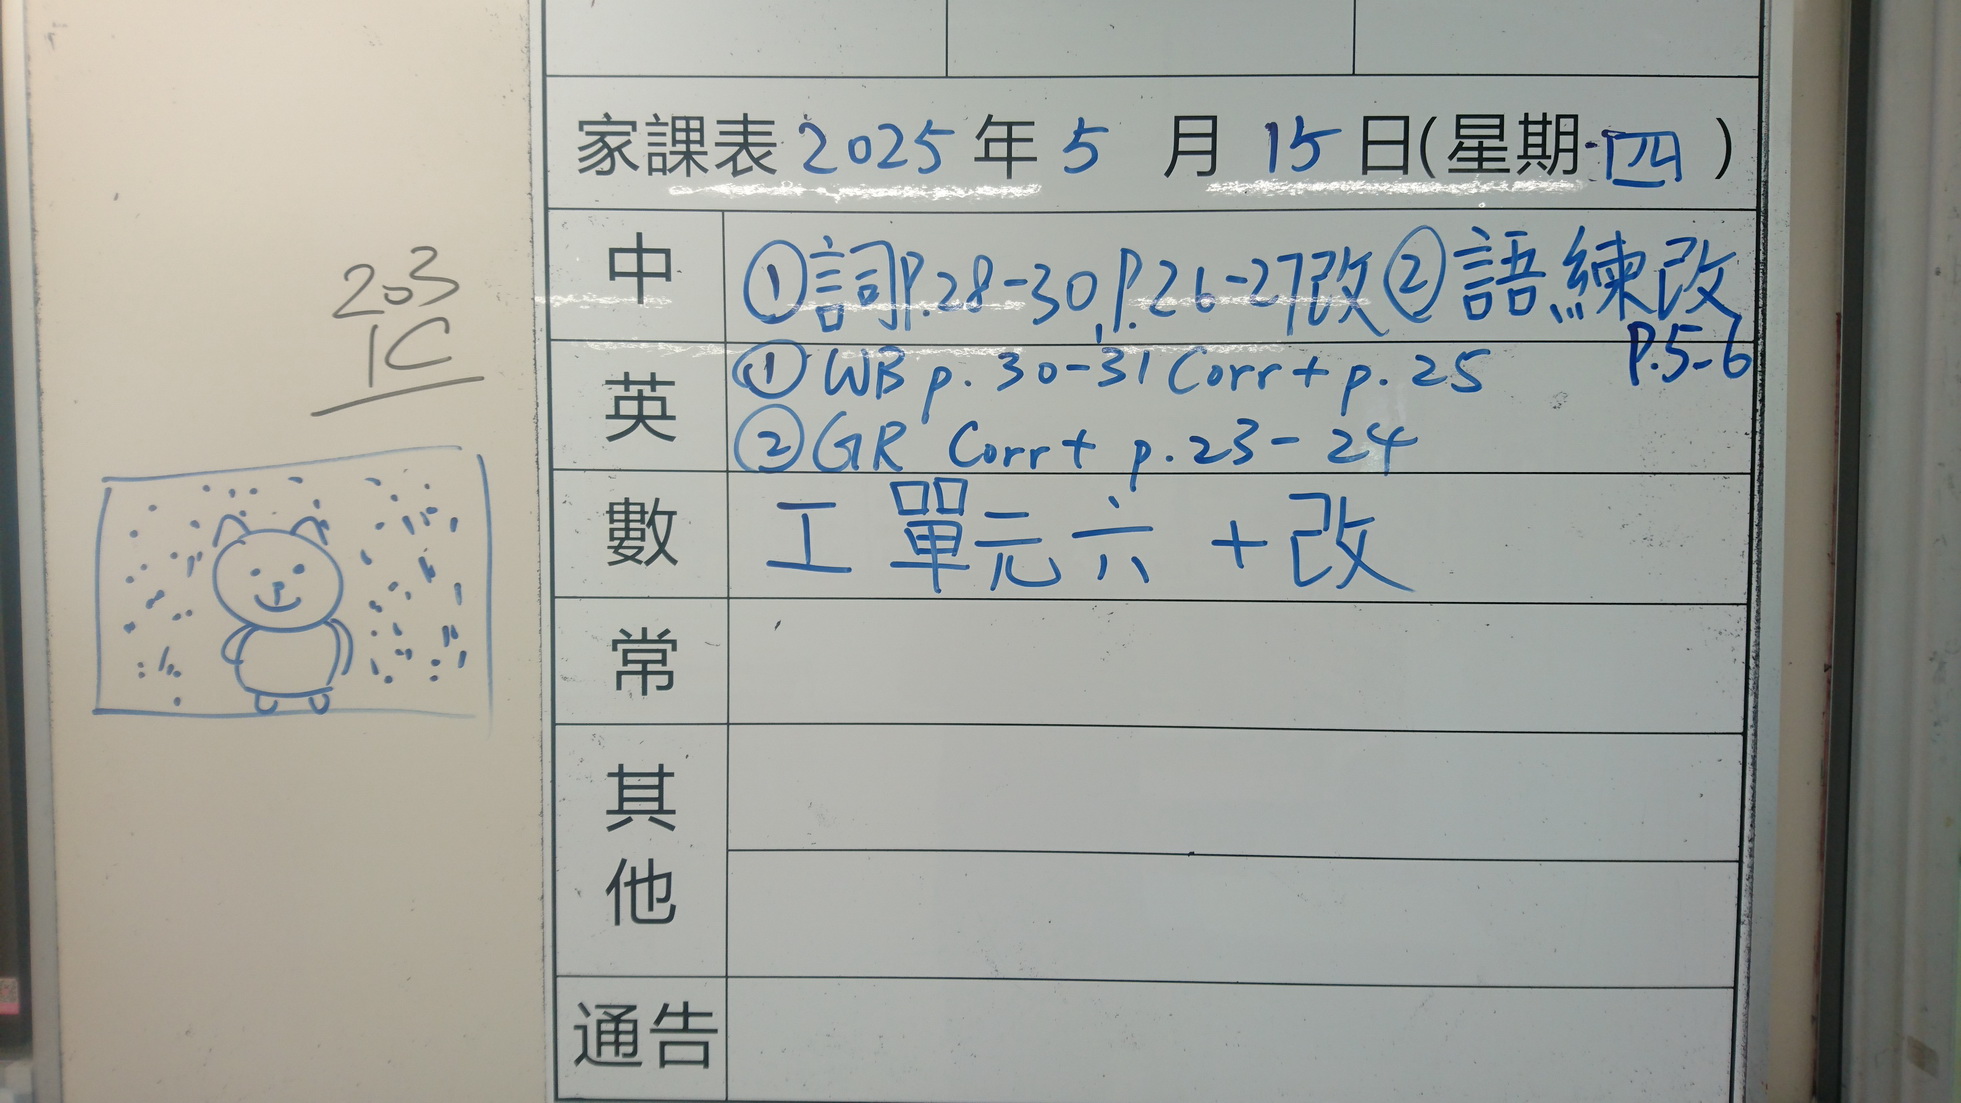 家課表 2025 年 5 月 15 日(星期 四 )
203
1C
中 ①詞P.28-30,P.26-27改②語練改
P.5-6
英 ① WB p. 30-31 Corr + p. 25
② GR Corr + p. 23 - 24
數 工 單元六 + 改
常
其他
通告